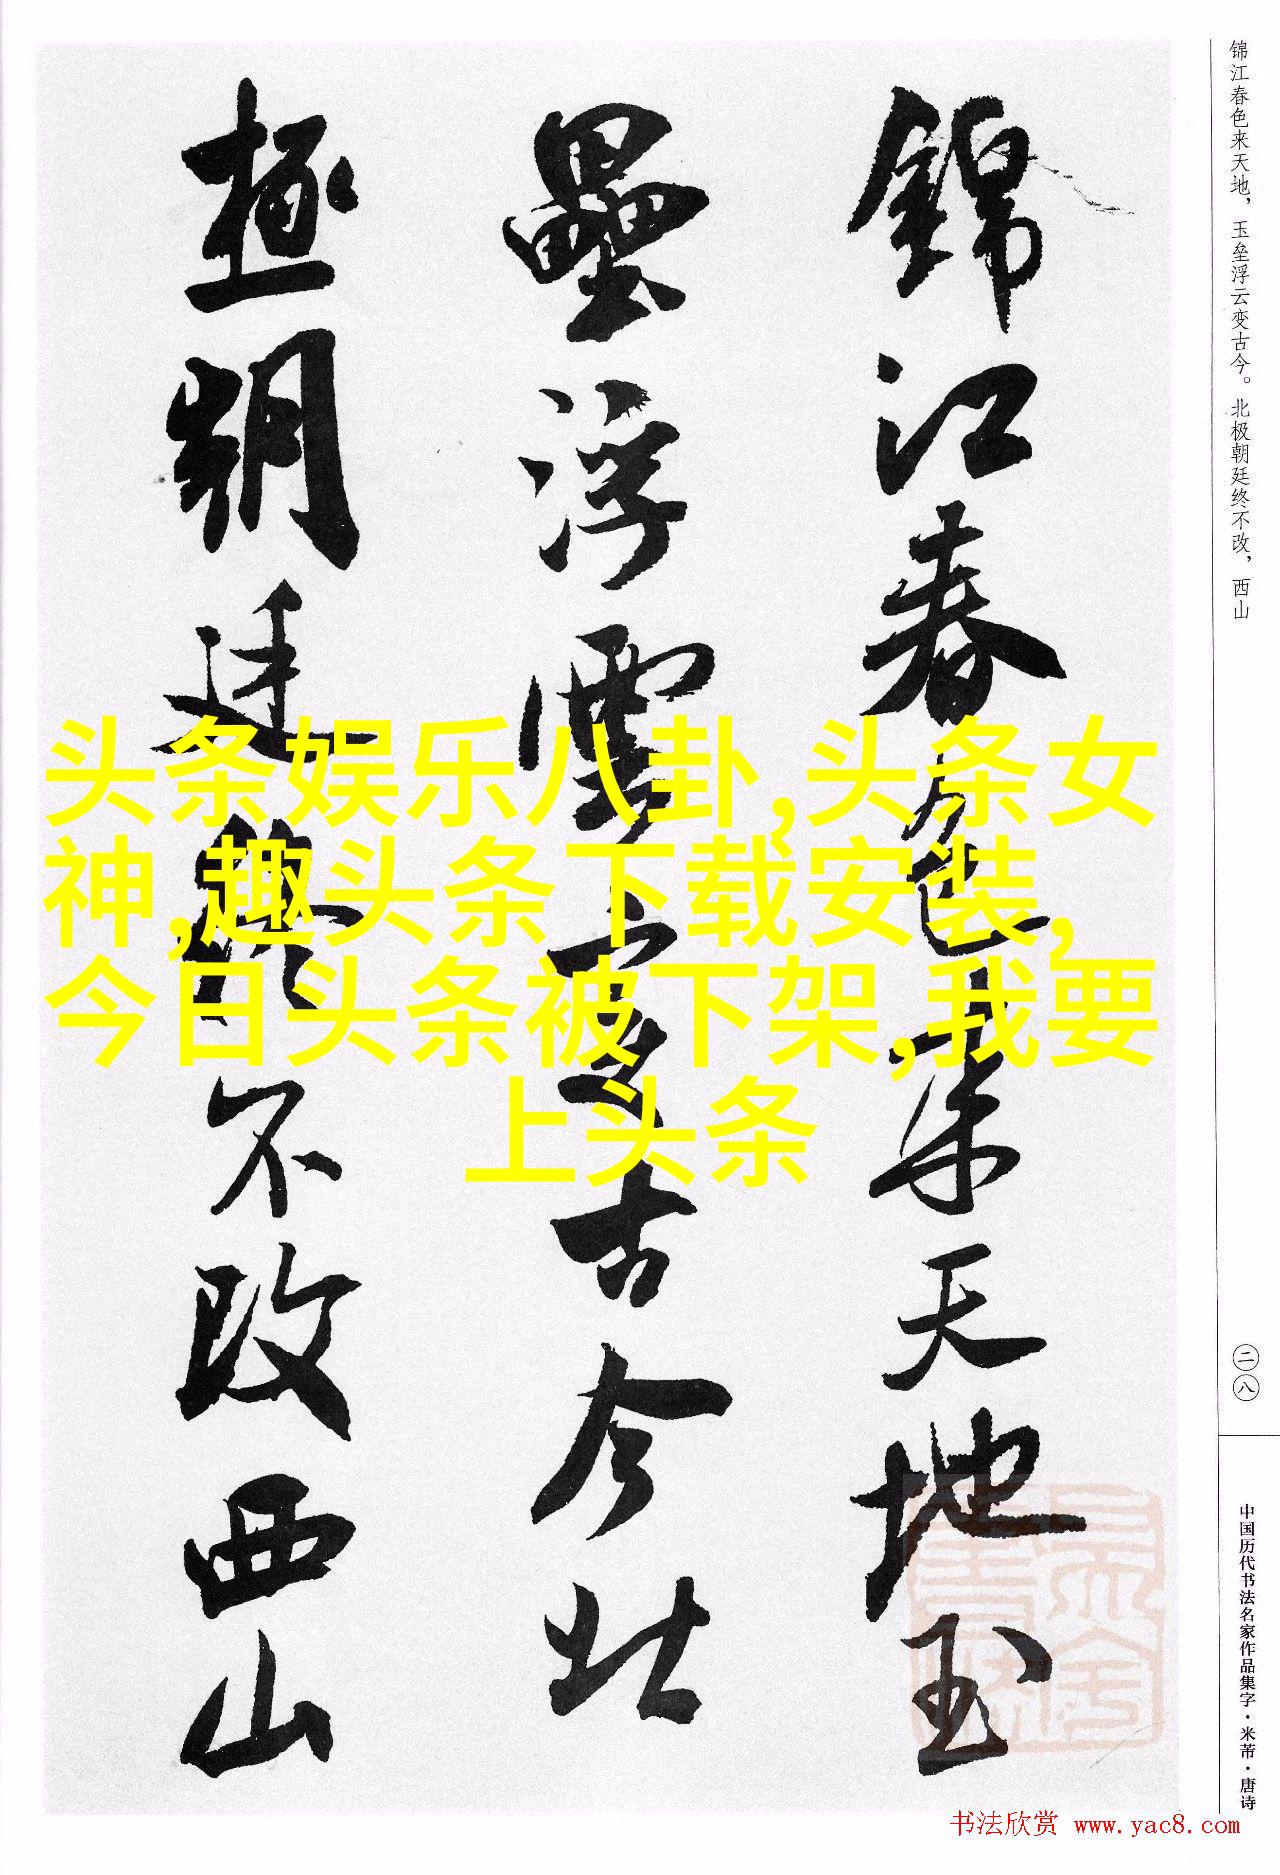 锦江春色来天地，玉垒浮云变古今。北极朝廷终不改，西山
錦江春色来天地玉
壘浮雲变古今北
極朝廷終不改西山
头条娱乐八卦,头条女
神,趣头条下载安装,
今日头条被下架,我要
上头条
二八
中国历代书法名家作品集字·米芾·唐诗
书法欣赏 www.yac8.com